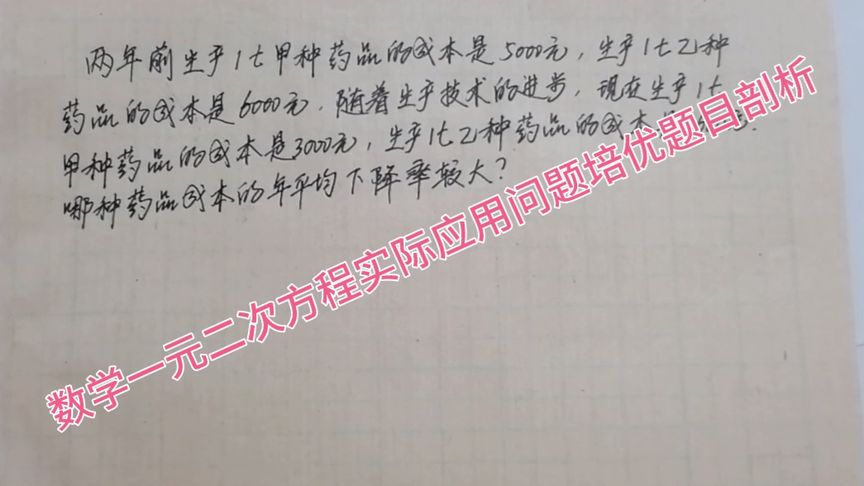 两年前生产1t甲种药品的成本是5000元，生产1t乙种
药品的成本是6000元，随着生产技术的进步，现在生产1t
甲种药品的成本是3000元，生产1t乙种药品的成本
哪种药品成本的年平均下降率较大？
数学一元二次方程实际应用问题培优题目剖析